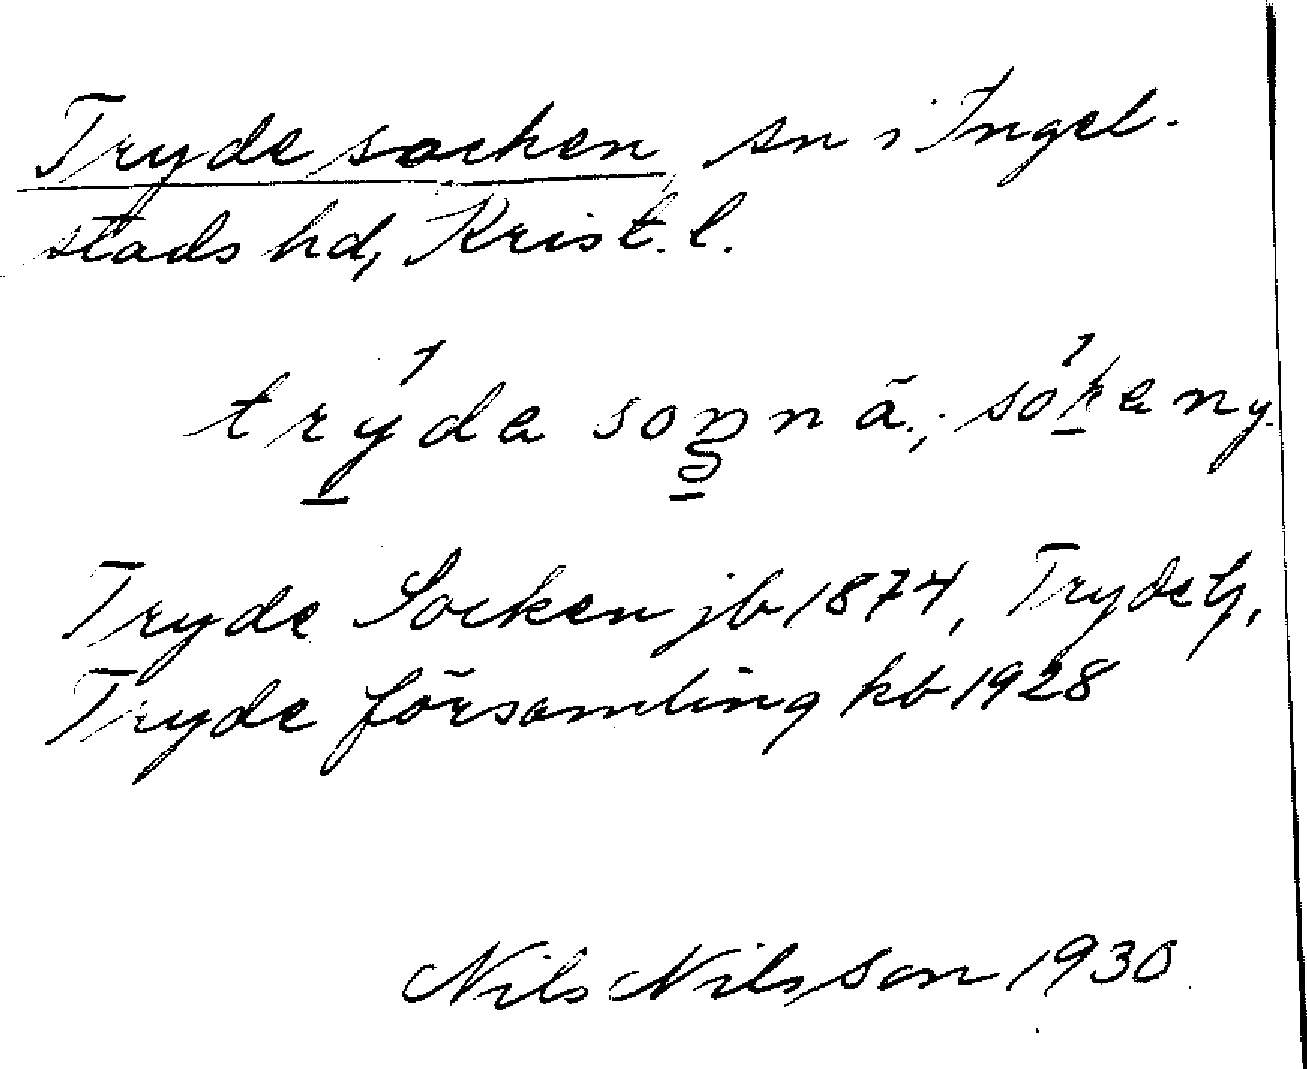 Tryde socken sn i Ingel-
stads hd, Krist. l.
trýda sonnā.; sókany.
Tryde Socken jb 1874, Tryde
Tryde församling kb 1928
Nils Nilsson 1930